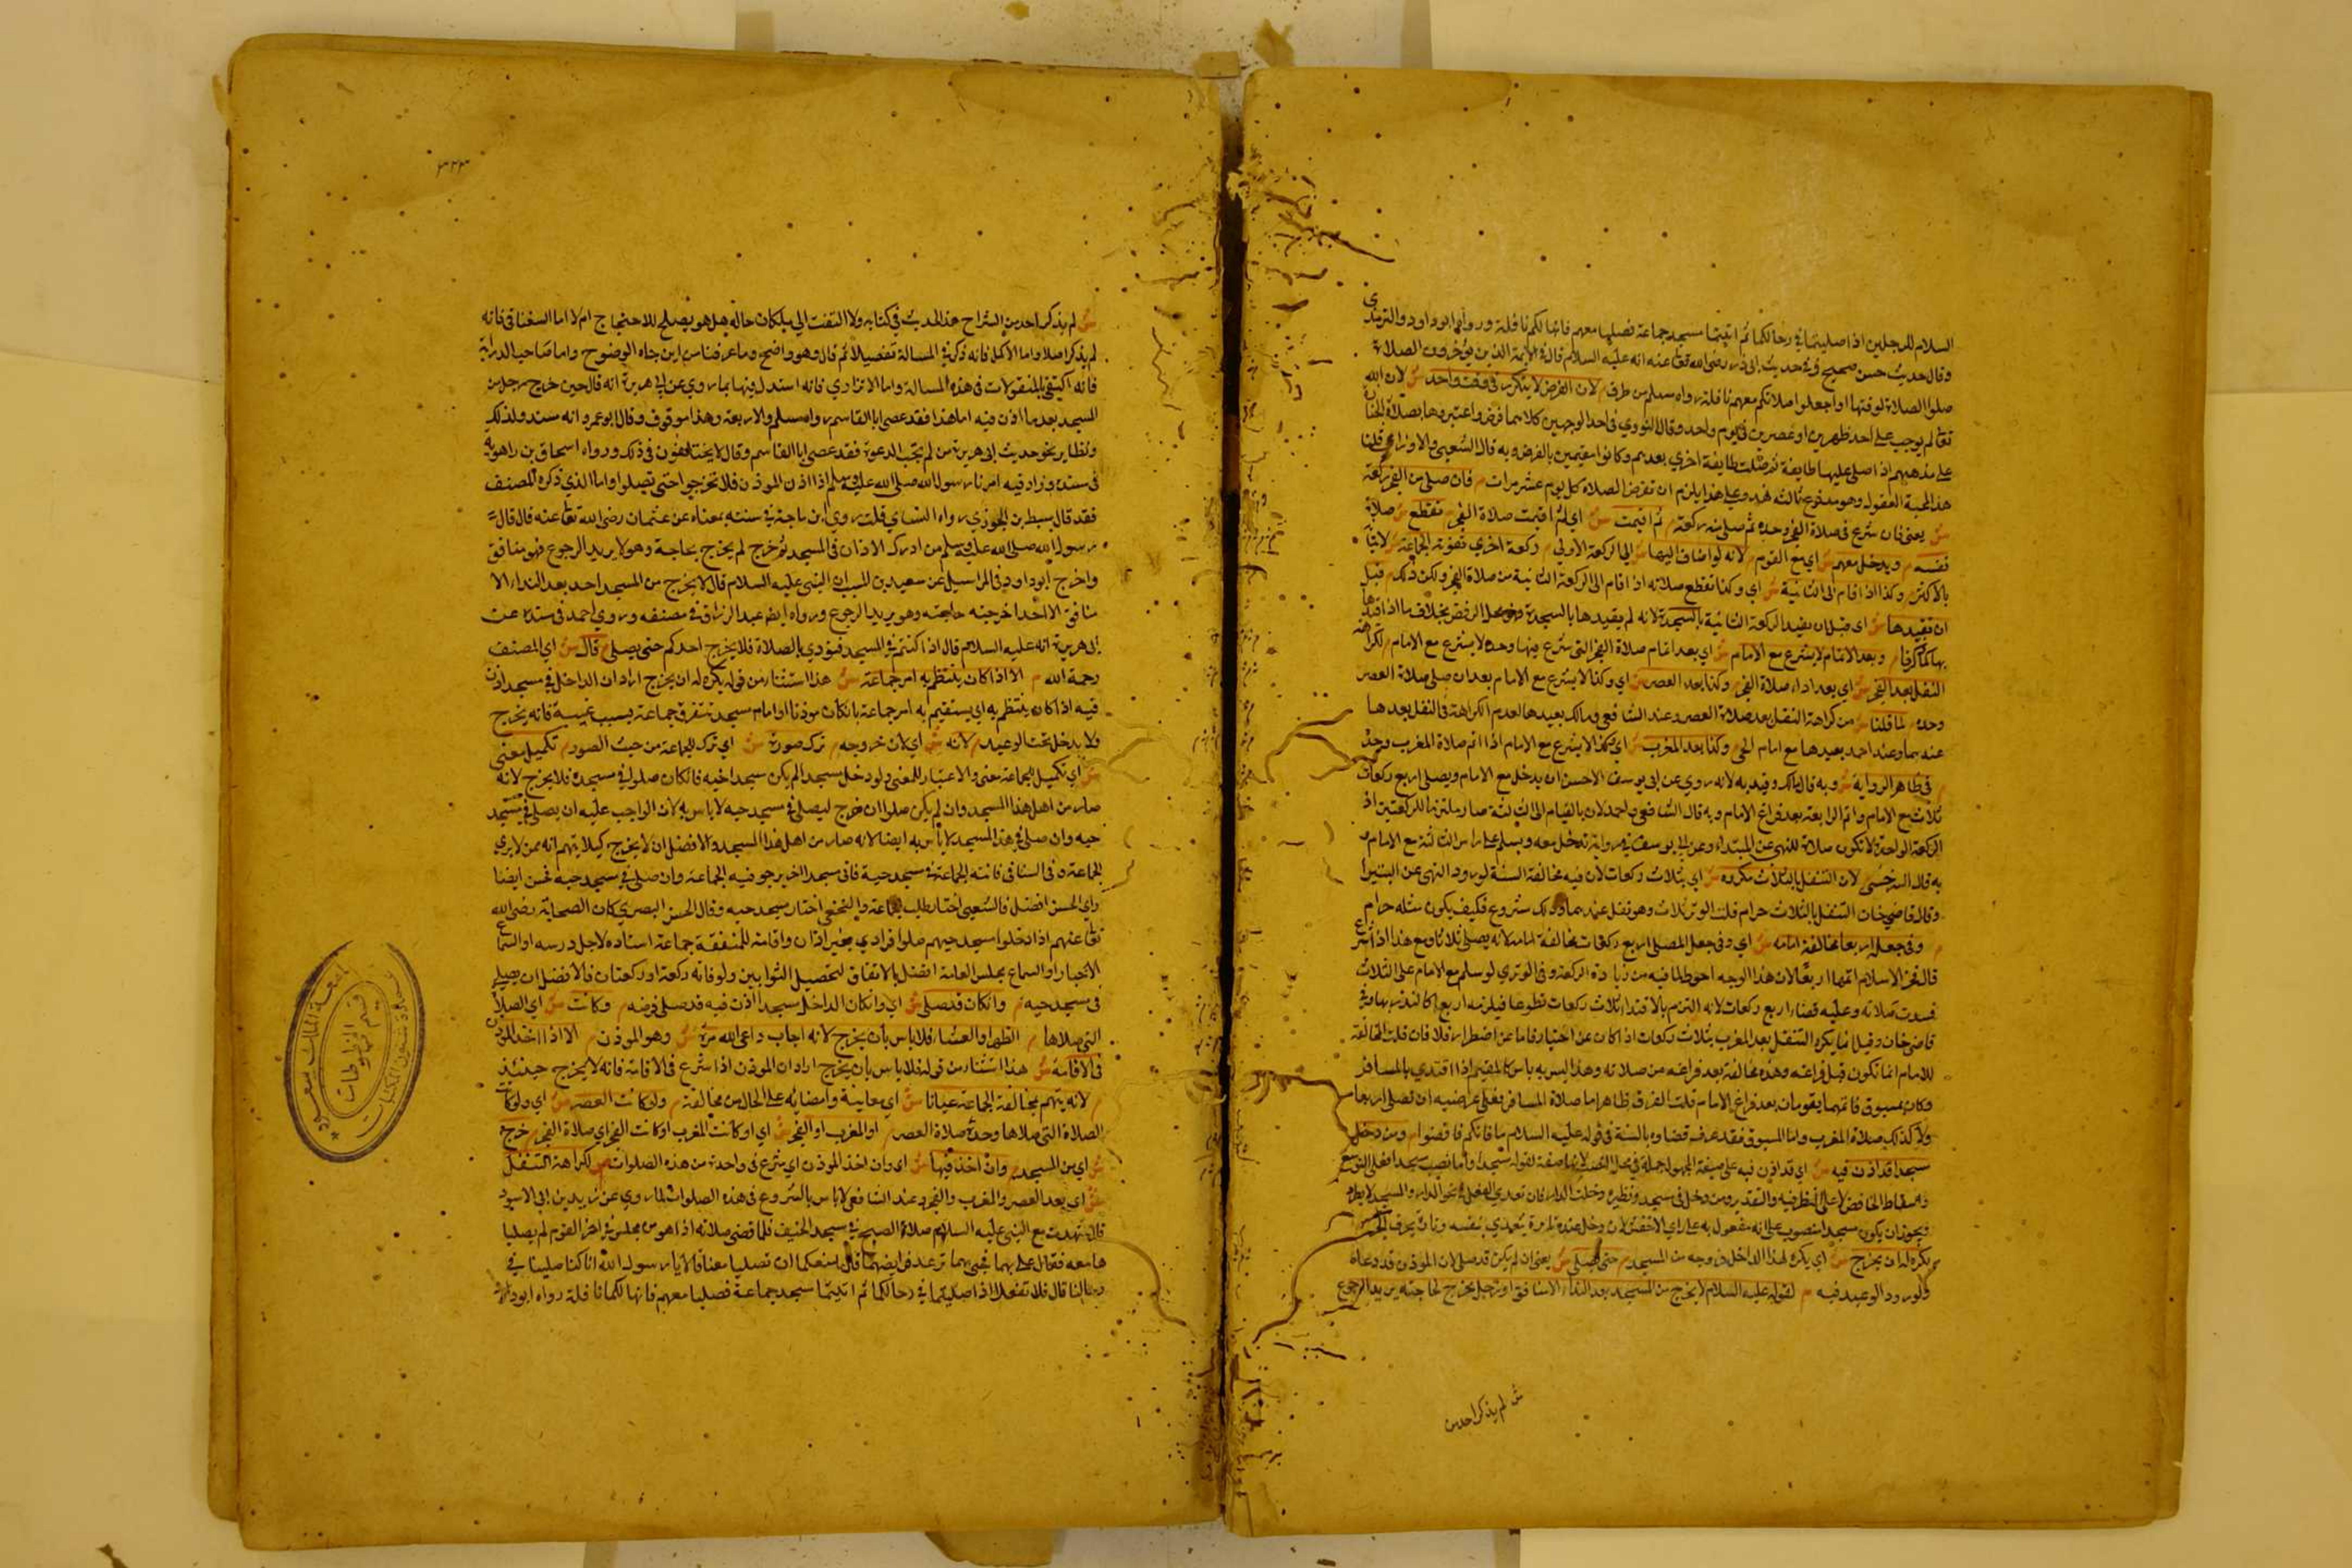 السلام للرجلين اذا صليتما في رحالكما ثم اتيتما مسجد جماعة فصليا معهم فانها لكم نافلة ورواها ابو داود والترمذي
وقال حديث حسن صحيح وفي حديث ابي ذر رضي الله تعا عنه انه عليه السلام قال في الايمة الذين يؤخرون الصلاة
صلوا الصلاة لوقتها واجعلوا صلاتكم معهم نافلة رواه مسلم من طرق م لان الفرض لا يتكرر في وقت واحد ش لان الله
تعالم يوجب على احد ظهرين او عصرين في يوم واحد وقال النووي في احد الوجهين كلاهما فرض واعتبروها بصلاة الجنازة
على مذهبهم اذا صلى عليها طايفة ثم صلت طايفة اخري بعدهم وكانوا مقيمين بالفرض وبه قال الشعبي والاوزاعي قلنا
هذا وعلى هذا يلزم ان تفرض الصلاة كل يوم عشر مرات م فان صلى من الفجر ركعة
ش يعني فان شرع في صلاة الفجر وحده ثم صلى منه ركعة م ثم اقيمت ش اي ثم اقيمت صلاة الفجر م تقطع ش صلاة
نفسه م ويدخل معهم ش اي مع القوم م لانه لو اضاف اليها ش الى الركعة الاولى م ركعة اخري تفوته الجماعة ش لاتيا
بالاكثر م وكذا اذا قام الى الثانية ش اي وكذا تقطع صلاته اذا قام الى الركعة الثانية من صلاة الفجر ولكن ذلك م قبل
ان يقيدها ش اي قبل ان يقيد الركعة الثانية بالسجدة لانه لم يقيدها بالسجدة محل الرفض بخلاف ما اذا قيدها
بها كما ذكرنا م وبعد الاتمام لا يشرع مع الامام ش اي بعد اتمام صلاة الفجر التي شرع فيها وحده لا يشرع مع الامام م لكراهة
النفل بعد الفجر ش اي بعد اداء صلاة الفجر م وكذا بعد العصر ش اي وكذا لا يشرع مع الامام بعد ان صلى صلاة العصر
وحده م لما قلنا ش من كراهة النفل بعد صلاة العصر وعند الشافعي ومالك يعيدها لعدم الكراهة في النفل بعدها
عندهما وعند احمد يعيدها مع امام الحي م وكذا بعد المغرب ش اي وكذا لا يشرع مع الامام اذا اتم صلاة المغرب وحده
م في ظاهر الرواية ش وبه قال مالك وقيد به لانه روي عن ابي يوسف الاحسن ان يدخل مع الامام ويصلي اربع ركعات
ثلاث مع الامام واتم الرابعة بعد فراغ الامام وبه قال الشافعي واحمد لان بالقيام الى الثالثة صار ملتزما للركعتين اذ
الركعة الواحدة لا تكون صلاة للنهي عن البتراء وعن ابي يوسف في رواية تدخل معه ويسلم على راس الثالثة مع الامام و
به قال السرخسي م لان التنفل بالثلاث مكروه ش اي بثلاث ركعات لان فيه مخالفة السنة لورود النهي عن البتيرا
وقال قاضي خان التنفل بالثلاث حرام قلت الوتر ثلاث وهو نفل عندهما وذلك مشروع فكيف يكون مثله حرام
م وفي جعلها اربعا مخالفة امامه ش اي وفي جعل المصلي اربع ركعات مخالفة امامه لانه يصلي ثلاثا ومع هذا اذا شرع
قال فخر الاسلام اتمها اربعا لان هذا الوجه احوط لما فيه من زيادة الركعة وفي الوتري لو سلم مع الامام على الثلاث
فسدت صلاته وعليه قضاء اربع ركعات لانه التزم بالاقتداء ثلاث ركعات تطوعا فيلزمه اربع كما لو نذر بها وفي
قاضي خان وقيل انما يكره التنفل بعد المغرب بثلاث ركعات اذا كان عن اختيار فاما عن اضطرار فلا فان قلت المخالفة
للامام انما تكون قبل فراغه وهذه مخالفة بعد فراغه من صلاته وهذا ليس به باس كالمقيم اذا اقتدي بالمسافر
وكان مسبوق فانهما يقومان بعد فراغ الامام قلت الفرق ظاهر اما صلاة المسافر فعلى عرضية ان تصلى اربعا
ولا كذلك صلاة المغرب واما المسبوق فقد عرف قضاوه بالسنة في قوله عليه السلام ما فاتكم فاقضوا م ومن دخل
مسجدا قد اذن فيه ش اي قد اذن فيه على صيغة المجهول جملة في محل النصب لانها صفة لقوله مسجدا واما نصب مسجدا فعلى التوسع
واسقاط الخافض لا على الظرفية والتقدير ومن دخل في مسجد ونظيره دخلت الدار
فيجوز ان يكون مسجدا منصوب على انه مفعول به على راي الاخفش لان دخل عنده تارة يتعدي بنفسه وتارة بحرف الجر
م يكره له ان يخرج ش اي يكره لهذا الداخل خروجه من المسجد م حتى يصلي ش يعني ان لم يكن قد صلى لان الموذن قد دعاه
ولورود الوعيد فيه م لقوله عليه السلام لا يخرج من المسجد بعد النداء الا منافق او رجل يخرج لحاجته يريد الرجوع
ش لم يذكر احد من
٣٢٣
ش لم يذكر احد من الشراح هذا الحديث في كتابه ولا التفت الى بيان حاله هل هو يصلح للاحتجاج ام لا اما السغناقي فانه
لم يذكر اصلا واما الاكمل فانه ذكر في المسالة تفصيلا ثم قال وهو واضح وما عرفنا من اين جاء الوضوح واما صاحب الدراية
فانه اكتفى بالمنقولات في هذه المسالة واما الاترازي فانه استدل فيها بما روي عن ابي هريرة انه قال حين خرج رجل من
المسجد بعد ما اذن فيه اما هذا فقد عصى ابا القاسم رواه مسلم والاربعة وهذا موقوف وقال ابو عمر وانه مسند ولذلك
ونظايره نحو حديث ابي هريرة من لم يجب الدعوة فقد عصى ابا القاسم وقال لا يختلفون في ذلك ورواه اسحاق بن راهويه
في مسنده وزاد فيه امرنا رسول الله صلى الله عليه وسلم اذا اذن الموذن فلا تخرجوا حتى تصلوا واما الذي ذكره المصنف
فقد قال سبط بن الجوزي رواه النساي قلت روي ابن ماجة في سننه بمعناه عن عثمان رضي الله تعا عنه قال قال
رسول الله صلى الله عليه وسلم من ادرك الاذان في المسجد ثم خرج لم يخرج بحاجة وهو لا يريد الرجوع فهو منافق
واخرج ابو داود في المراسيل عن سعيد بن المسيب ان النبي عليه السلام قال لا يخرج من المسجد احد بعد النداء الا
منافق الا لاحد اخرجته حاجته وهو يريد الرجوع ورواه ايضا عبد الرزاق في مصنفه وروي احمد في مسنده عن
ابي هريرة انه عليه السلام قال اذا كنتم في المسجد فنودي بالصلاة فلا يخرج احدكم حتى يصلي م قال ش اي المصنف
رحمه الله م الا اذا كان ينتظم به امر جماعة ش هذا استثناء من قوله يكره له ان يخرج اراد ان الداخل في مسجد اذن
فيه اذا كان ينتظم به اي يستقيم به امر جماعة بان كان موذنا او امام مسجد تتفرق جماعة بسبب غيبته فانه يخرج
ولا يدخل تحت الوعيد م لانه ش اي لان خروجه م ترك صورة ش اي ترك للجماعة من حيث الصورة م تكميل معنى
ش اي تكميل للجماعة معنى والاعتبار للمعنى ولو دخل مسجدا لم يكن مسجد احيه فان كان صلوا في مسجده فلا يخرج لانه
صار من اهل هذا المسجد وان لم يكن صلوا ان خرج ليصلي في مسجد حيه لا باس به لان الواجب عليه ان يصلي في مسجد
حيه وان صلى في هذا المسجد لا باس به ايضا لانه صار من اهل هذا المسجد والافضل ان لا يخرج كيلا يتهم انه ممن لا يري
الجماعة وفي الشافي فاتته الجماعة في مسجد حيه فاتى مسجدا اخر يرجو فيه الجماعة وان صلى في مسجد حيه فحسن ايضا
وراي الحسن افضل فالشعبي اختار طلب الجماعة والنخعي اختار مسجد حيه وقال الحسن البصري كان الصحابة رضي الله
تعا عنهم اذا دخلوا مسجد حيهم صلوا فرادي بغير اذان واقامة للمتفقه جماعة استاذه لاجل درسه او استماع
الاخبار او السماع بمجلس العامة افضل بالاتفاق لتحصيل الثوابين ولو فاته ركعة او ركعتان فالافضل ان يصلي
في مسجد حيه م وان كان قد صلى ش اي وان كان الداخل مسجدا اذن فيه قد صلى فرضه م وكانت ش اي الصلاة
التي صلاها م الظهر او العشاء فلا باس بان يخرج لانه اجاب داعي الله مرة ش وهو الموذن م الا اذا اخذ الموذن
في الاقامة ش هذا استثناء من قوله فلا باس بان يخرج اراد ان الموذن اذا شرع في الاقامة فانه لا يخرج حينئذ
م لانه يتهم بمخالفة الجماعة عيانا ش اي معاينة م ولو كانت العصر ش اي ولو كانت
الصلاة التي صلاها وحده صلاة العصر م او المغرب او الفجر ش اي او كانت المغرب او كانت الفجر اي صلاة الفجر م خرج
ش اي من المسجد م وان اخذ فيها ش اي وان اخذ الموذن اي شرع في واحدة من هذه الصلوات م لكراهة التنفل
ش اي بعد العصر والمغرب والفجر وعند الشافعي لا باس بالشروع في هذه الصلوات لما روي عن يزيد بن ابي الاسود
قال شهدت مع النبي عليه السلام صلاة الصبح في مسجد الخيف فلما قضى صلاته اذا هو من مجلس في اخر القوم لم يصليا
هامعه فقال علي بهما فجيء بهما ترعد فرايصهما قال ما منعكما ان تصليا معنا قالا يا رسول الله انا كنا صلينا في
رحالنا قال فلا تفعلا اذا صليتما في رحالكما ثم اتيتما مسجد جماعة فصليا معهم فانها لكما نافلة رواه ابو داود
جامعة الملك سعود
عمادة شئون المكتبات
قسم المخطوطات